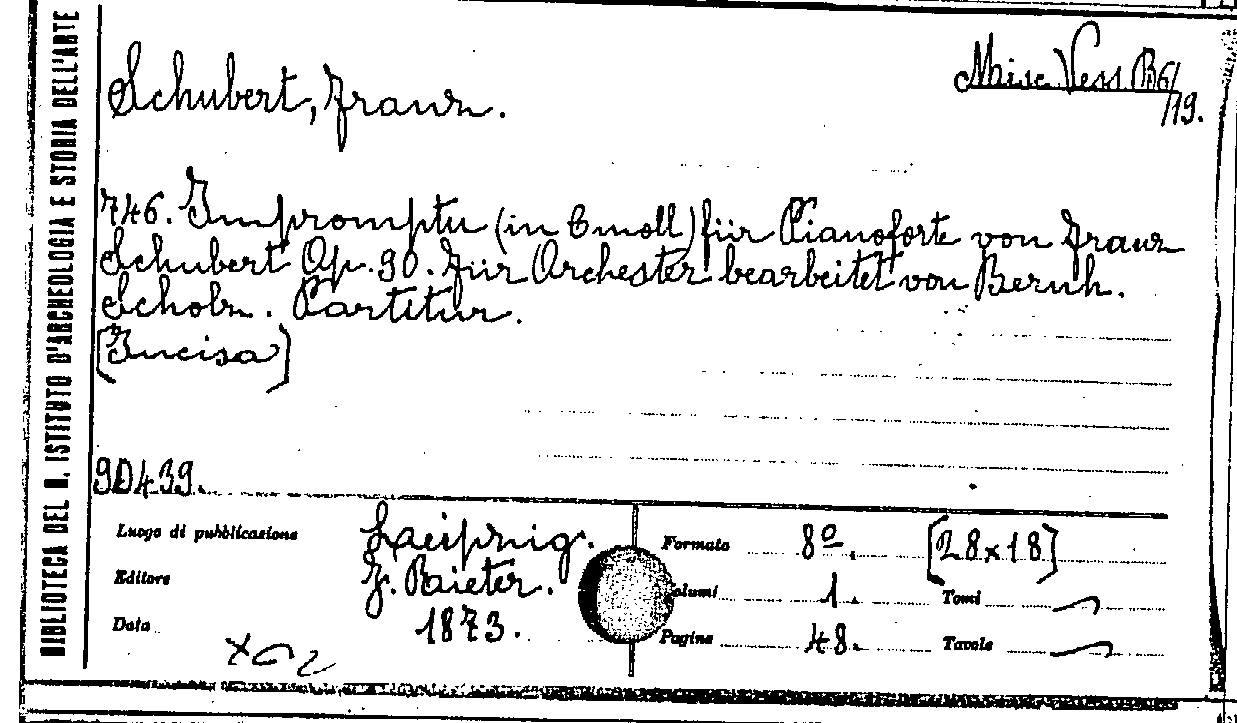 BIBLIOTECA DEL R. ISTITUTO D'ARCHEOLOGIA E STORIA DELL'ARTE
Schubert, Franz.
Misc. Vess. B6/19.
746. Impromptu (in C moll) für Pianoforte von Franz
Schubert Op. 90. Für Orchester bearbeitet von Bernh.
Scholz. Partitur.
[Incisa]
90439.
Luogo di pubblicazione Leipzig.
Editore J. Rieter.
Data 1873.
Formato 8º. [28x18]
Volumi 1. Tomi
Pagine 48. Tavole